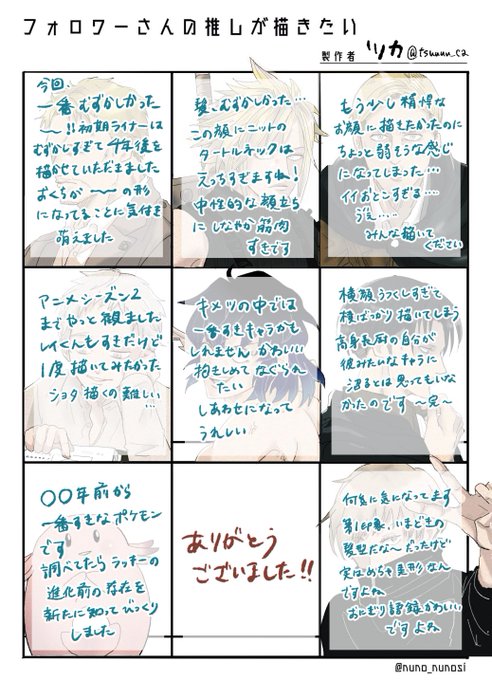 フォロワーさんの推しが描きたい
製作者 ツカ @tsuuuu_c2
今回、
一番むずかしかった
〜!!初期ライナーは
むずかしすぎて4年後を
描かせていただきました
おくちが〜〜の形
になってることに気付き
萌えました
髪、むずかしかった…
この顔にニットの
タートルネックは
えっちすぎますね!
中性的な顔立ち
にしなやか筋肉
すきです
もう少し精悍な
お顔に描きたかったのに
ちょっと弱そうな感じ
になってしまった…
イイおとこすぎる…
うぇ…
みんな描いて
ください
アニメシーズン2
までやっと観ました
レイくんもすきだけど
1度描いてみたかった
ショタ描くの難しい…
キメツの中では
一番すきキャラかも
しれません かわいい
抱きしめてなぐられ
たい
しあわせになって
うれしい
横顔うつくしすぎて
横ばっかり描いてしまう
高身長厨の自分が
低みたいなキャラに
沼るとは思ってもいな
かったのです 〜完〜
〇〇年前から
一番すきなポケモン
です
調べてたらラッキーの
進化前の存在を
新たに知ってびっくり
しました
ありがとう
ございました!!
何気に気になってます
第1印象、いまどきの
髪型だな〜だったけど
実はめちゃ美形なん
ですよね
おにぎり語録かわいい
ですよね
@nuno_nunosi